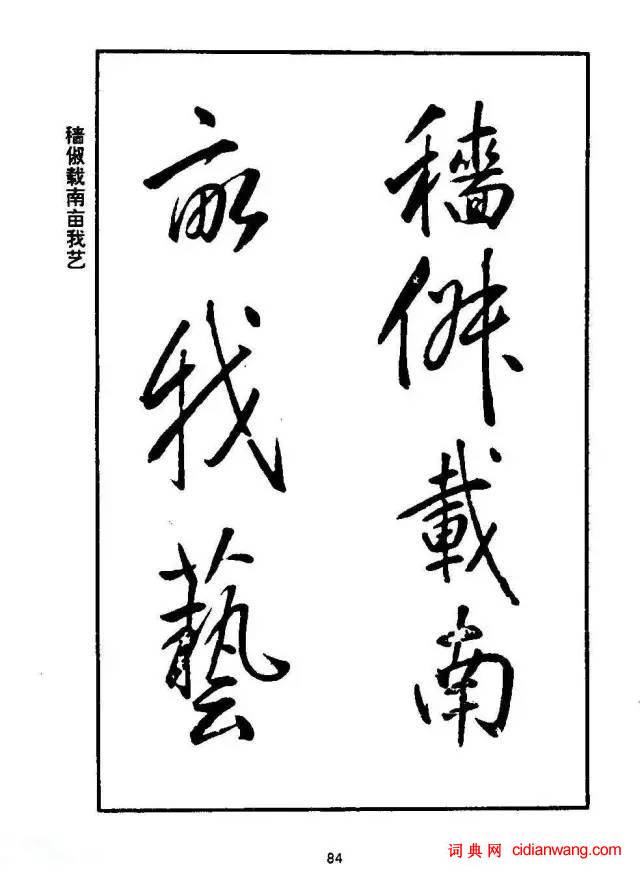 穡俶載南
畝我藝
穑俶载南亩我艺
84
词典网 cidianwang.com